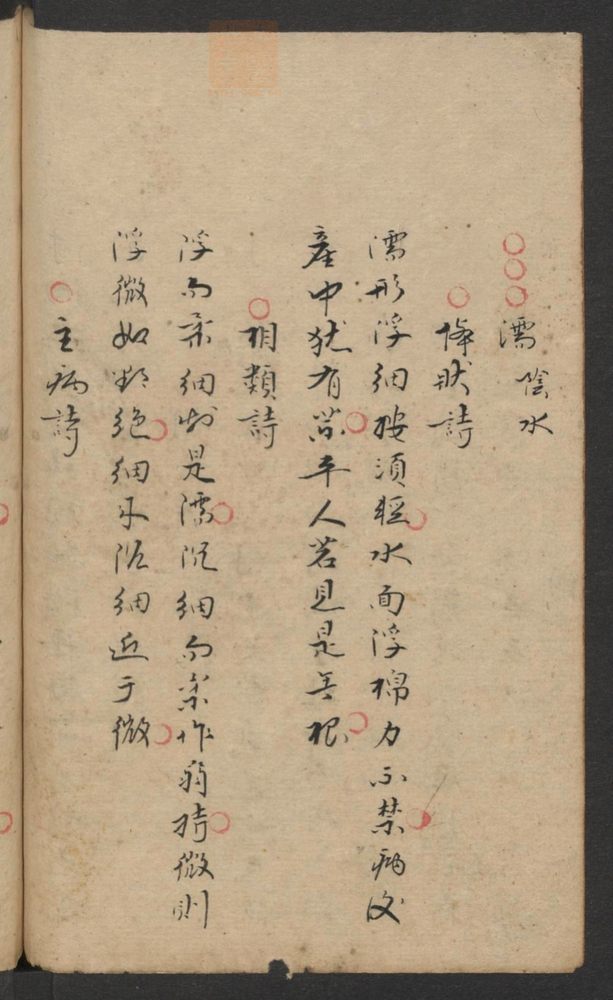 濡陰水
体狀詩
濡形浮細按須輕水面浮棉力不禁病后
產中犹有藥平人若見是無根
相類詩
浮而柔細知是濡沉細而柔作弱持微則
浮微如欲絕細來沉細近于微
主病詩